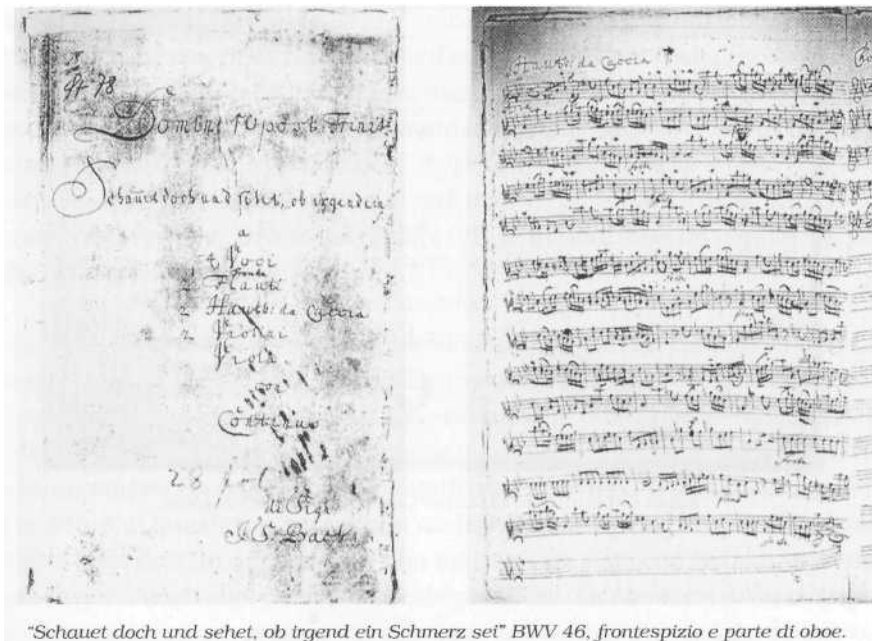 78
Domin: 10 post Trinit:
Schauet doch und sehet, ob irgend ein
a
4 Voci
2 Flauti
2 Hautb: da Caccia
2 Violini
Viola
e
Continuo
di Sigr
J. S. Bach
Hautb: da Caccia
"Schauet doch und sehet, ob irgend ein Schmerz sei" BWV 46, frontespizio e parte di oboe.